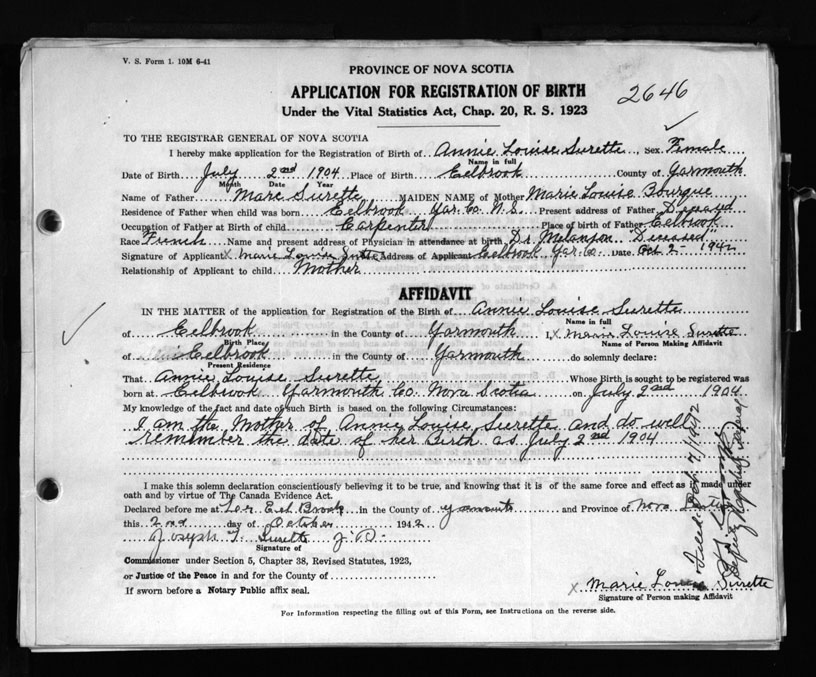 V. S. Form 1. 10M 6-41
PROVINCE OF NOVA SCOTIA
APPLICATION FOR REGISTRATION OF BIRTH
2646
Under the Vital Statistics Act, Chap. 20, R. S. 1923
TO THE REGISTRAR GENERAL OF NOVA SCOTIA
I hereby make application for the Registration of Birth of Annie Louise Surette, Sex Female
Name in full
Date of Birth July 2nd 1904 Place of Birth Eelbrook County of Yarmouth
Month Date Year
Name of Father Marc Surette MAIDEN NAME of Mother Marie Louise Bourque
Residence of Father when child was born Eelbrook Yar. Co. N.S. Present address of Father Deceased
Occupation of Father at Birth of child Carpenter Place of birth of Father Eelbrook
Race French Name and present address of Physician in attendance at birth Dr. Melanson Deceased
Signature of Applicant X Marie Louise Surette Address of Applicant Eelbrook Yar. Co. Date Oct 2- 1942
Relationship of Applicant to child Mother
AFFIDAVIT
IN THE MATTER of the application for Registration of the Birth of Annie Louise Surette
Name in full
of Eelbrook in the County of Yarmouth I, X Marie Louise Surette
Birth Place Name of Person Making Affidavit
of Eelbrook in the County of Yarmouth do solemnly declare:
Present Residence
That Annie Louise Surette Whose Birth is sought to be registered was
born at Eelbrook Yarmouth Co. Nova Scotia on July 2nd 1904
My knowledge of the fact and date of such Birth is based on the following Circumstances:
I am the Mother of Annie Louise Surette and do well
remember the date of her Birth as July 2nd 1904
I make this solemn declaration conscientiously believing it to be true, and knowing that it is of the same force and effect as if made under
oath and by virtue of The Canada Evidence Act.
Declared before me at Eel Brook in the County of Yarmouth and Province of Nova Scotia
this 2nd day of October 1942
Joseph T. Surette J.P.
Signature of
Commissioner under Section 5, Chapter 38, Revised Statutes, 1923,
or Justice of the Peace in and for the County of
If sworn before a Notary Public affix seal.
X Marie Louise Surette
Signature of Person making Affidavit
For Information respecting the filling out of this Form, see Instructions on the reverse side.
Deputy Registrar General